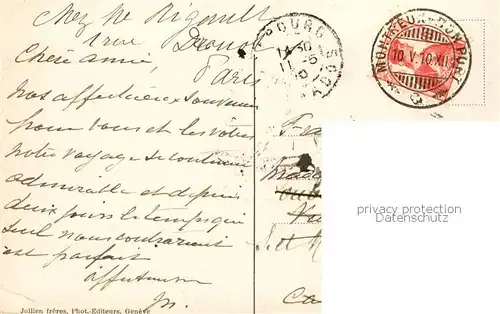 Chez Mr Rigault
1 rue Drouot
Paris
Chère amie,
nos affectueux souvenirs
pour vous et les vôtres
notre voyage se continue
admirable et depuis
deux jours le temps qui
seul nous contrariait
est parfait
affectueusement
BOURG
11-5
MONTREUX-BONPORT
10.V.10.XII
privacy protection
Datenschutz
S. et M
Jullien frères, Phot.-Editeurs, Genève